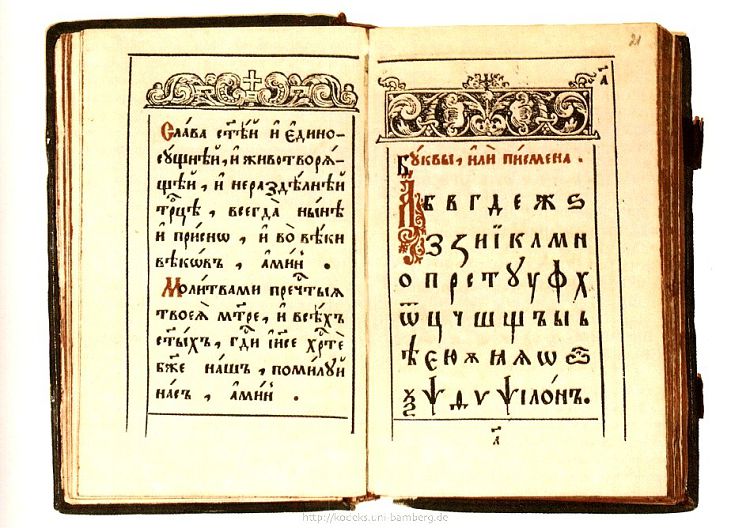 Сла́ва ст҃ѣ́й и҆ є҆дино-
сꙋ́щнѣй, и҆ животворѧ́-
щѣй, и҆ нераздѣ́лнѣй
трⷪ҇цѣ, всегда̀ ны́нѣ
и҆ при́снѡ, и҆ во̀ вѣ́ки
вѣкѡ́въ, а҆ми́нь.
Моли́твами пречⷭ҇тыѧ
твоеѧ̀ мт҃ре, и҆ всѣ́хъ
ст҃ы́хъ, гдⷭ҇и і҆и҃се хрⷭ҇тѐ
бж҃е на́шъ, поми́лꙋй
на́съ, а҆ми́нь.
21
Бꙋ́квы, и҆лѝ пи́смена.
А б в г д е ж ѕ
з ʒ и ї к л м н
о п р с т ꙋ у ф х
ѿ ц ч ш щ ъ ы ь
ѣ є ю ѫ ѧ ꙗ ѡ
ѯ ѱ ѳ ѵ ѱіло́нъ.
http://kodeks.uni-bamberg.de